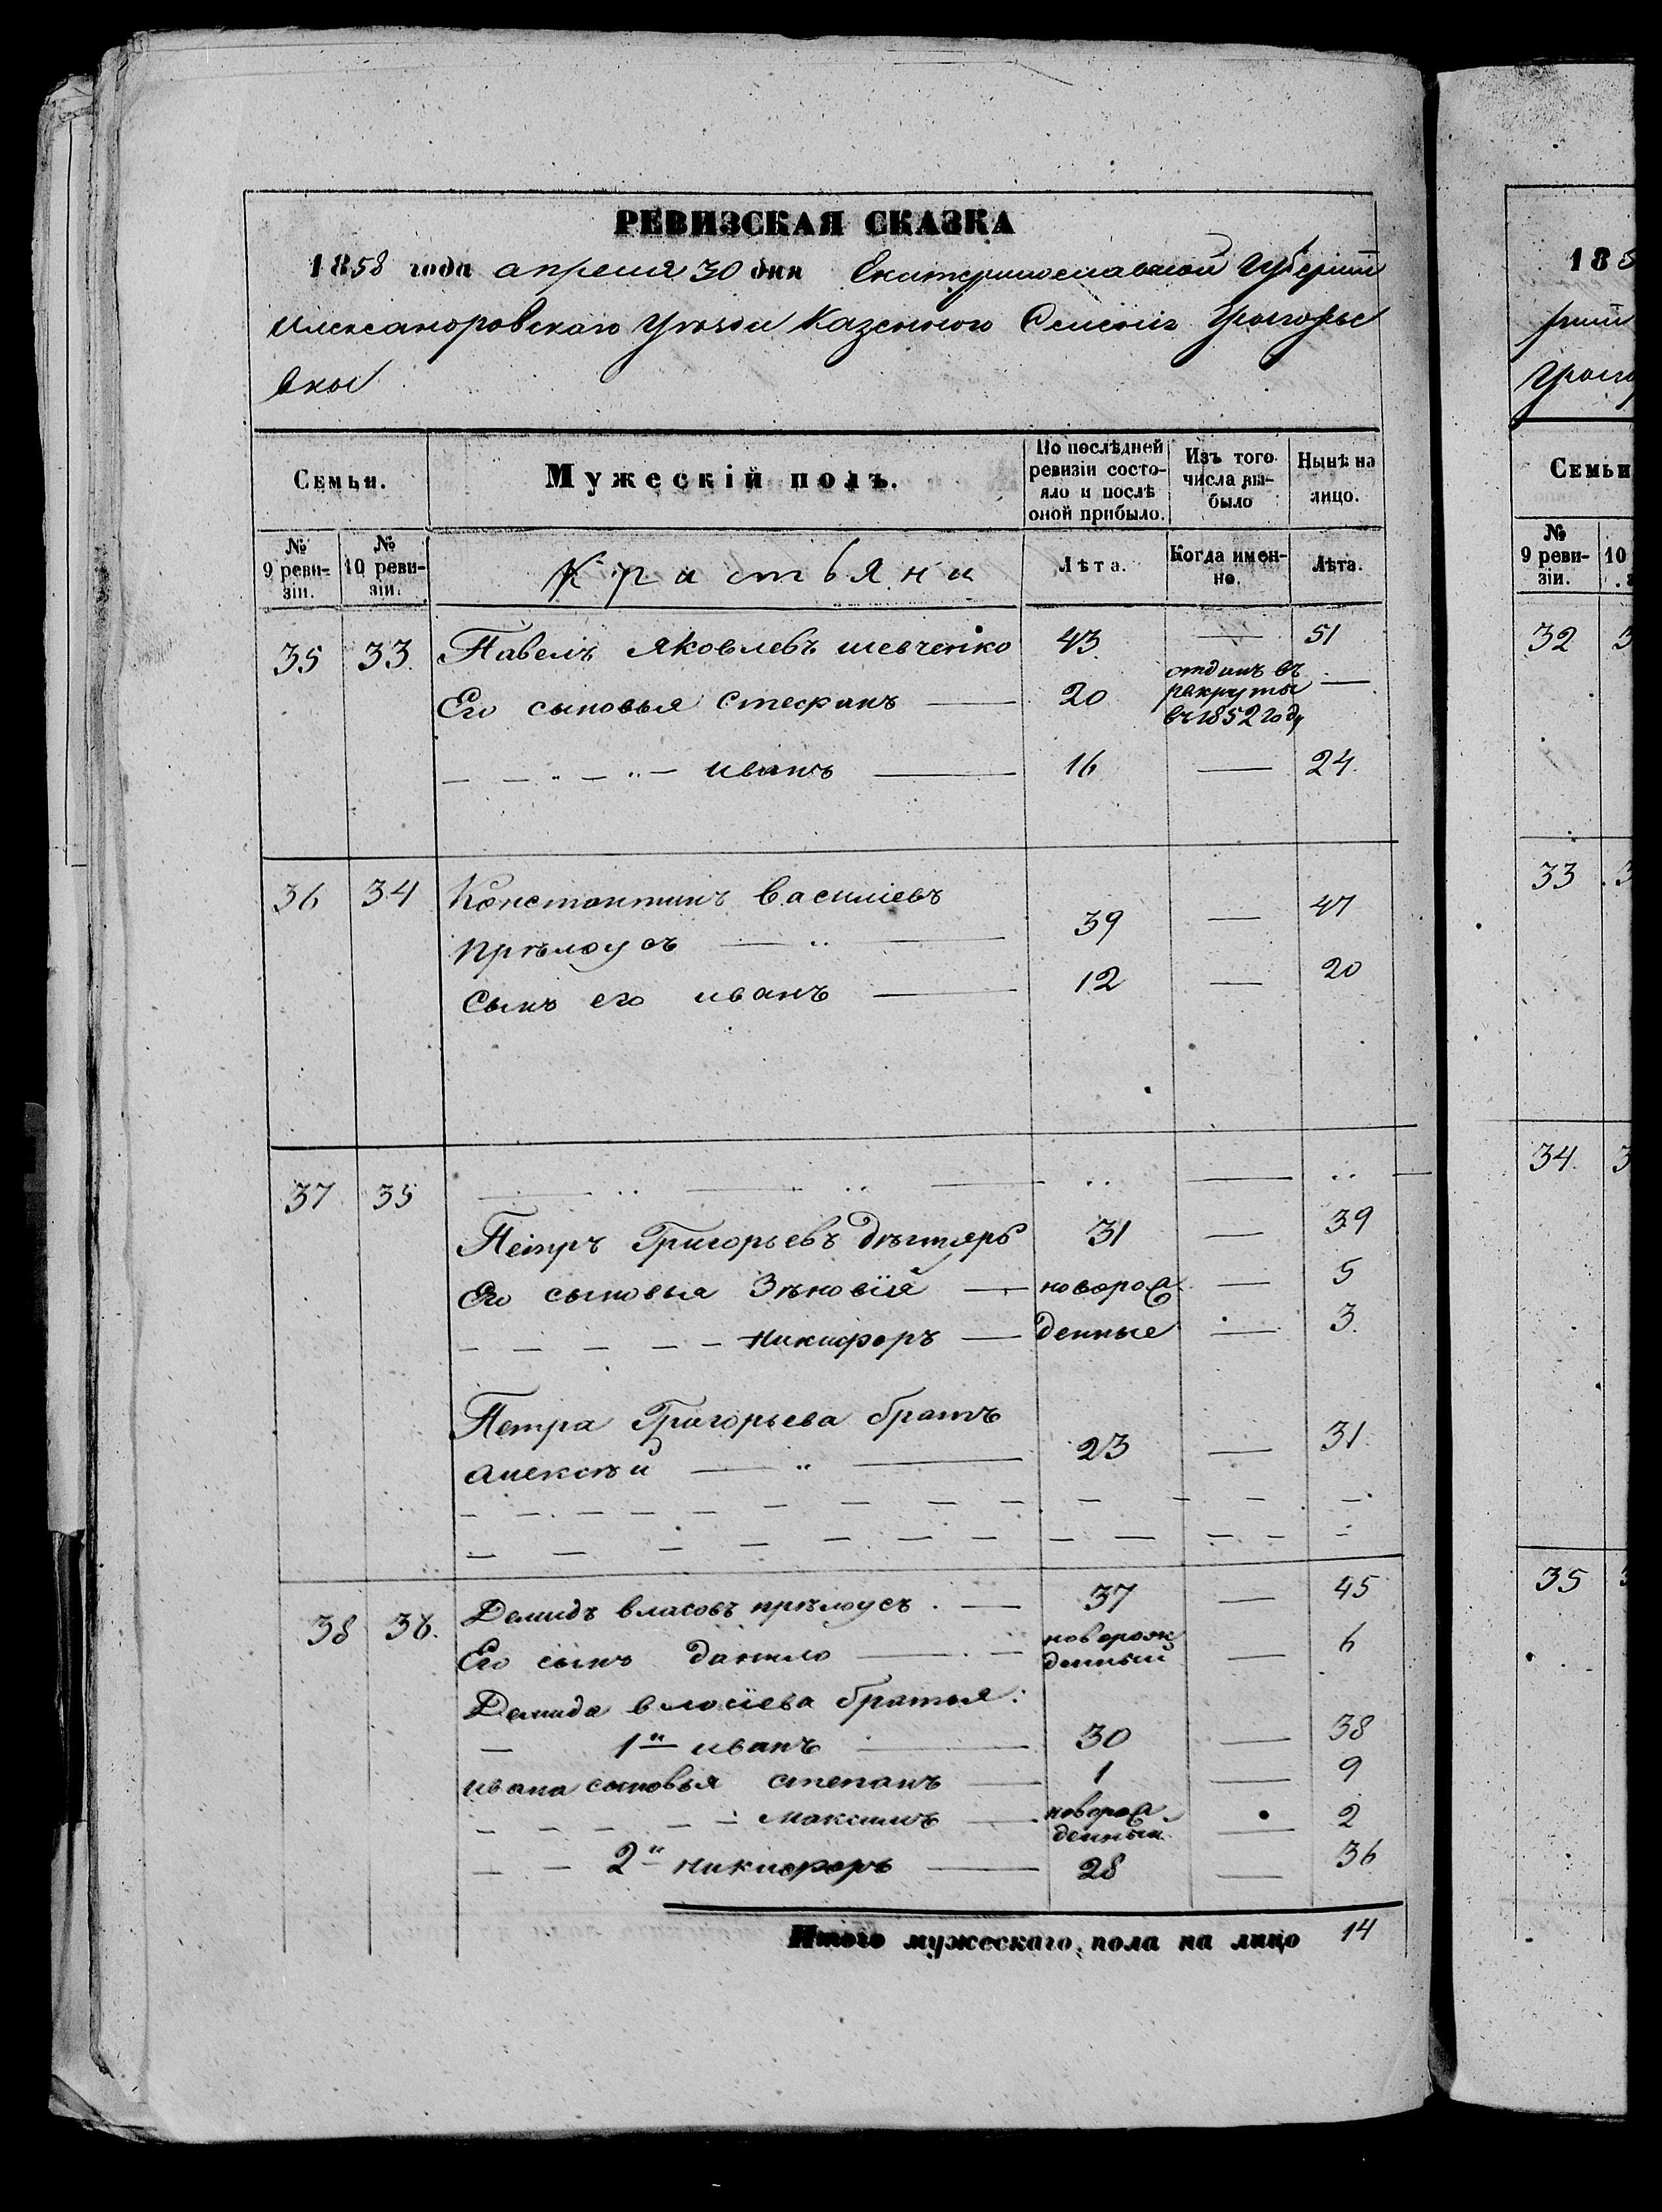 РЕВИЗСКАЯ СКАЗКА
1858 года апреля 30 дня Екатеринославской Губернии
Александровскаго Уѣзда Казенного Селенія Григорье
вки
Семьи.
Мужескій полъ.
По послѣдней ревизіи состояло и послѣ оной прибыло.
Изъ того числа выбыло
Ныне на лицо.
№ 9 ревизіи.
№ 10 ревизіи.
Крастьяни
Лѣта.
Когда именно.
Лѣта.
35 33 Павелъ Яковлевъ шевченко 43 — 51
Его сыновья Стефанъ — 20 отданъ въ рекруты въ 1852 году —
иванъ — 16 — 24
36 34 Константинъ Василіевъ
прѣлоусъ — 39 — 47
Сынъ его иванъ — 12 — 20
37 35
Петръ Григорьевъ дѣгтярь 31 — 39
Его сыновья Зѣновій — новорож — 5
Никифоръ — денные — 3
Петра Григорьева братъ
алексѣй — 23 — 31
38 36. Демидъ власовъ прѣлоусъ. — 37 — 45
Его сынъ данило — новорожденный — 6
Демида власіева братья:
1й иванъ — 30 — 38
ивана сыновья степанъ — 1 — 9
Максимъ — новорожденный — 2
2й никифоръ — 28 — 36
Итого мужескаго пола на лицо 14
18
Семьи
№ 9 ревизіи.
10
32
33
34
35